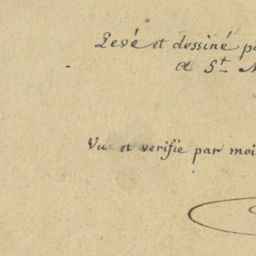 Levé et dessiné p
A S.t
Vu et verifié par moi